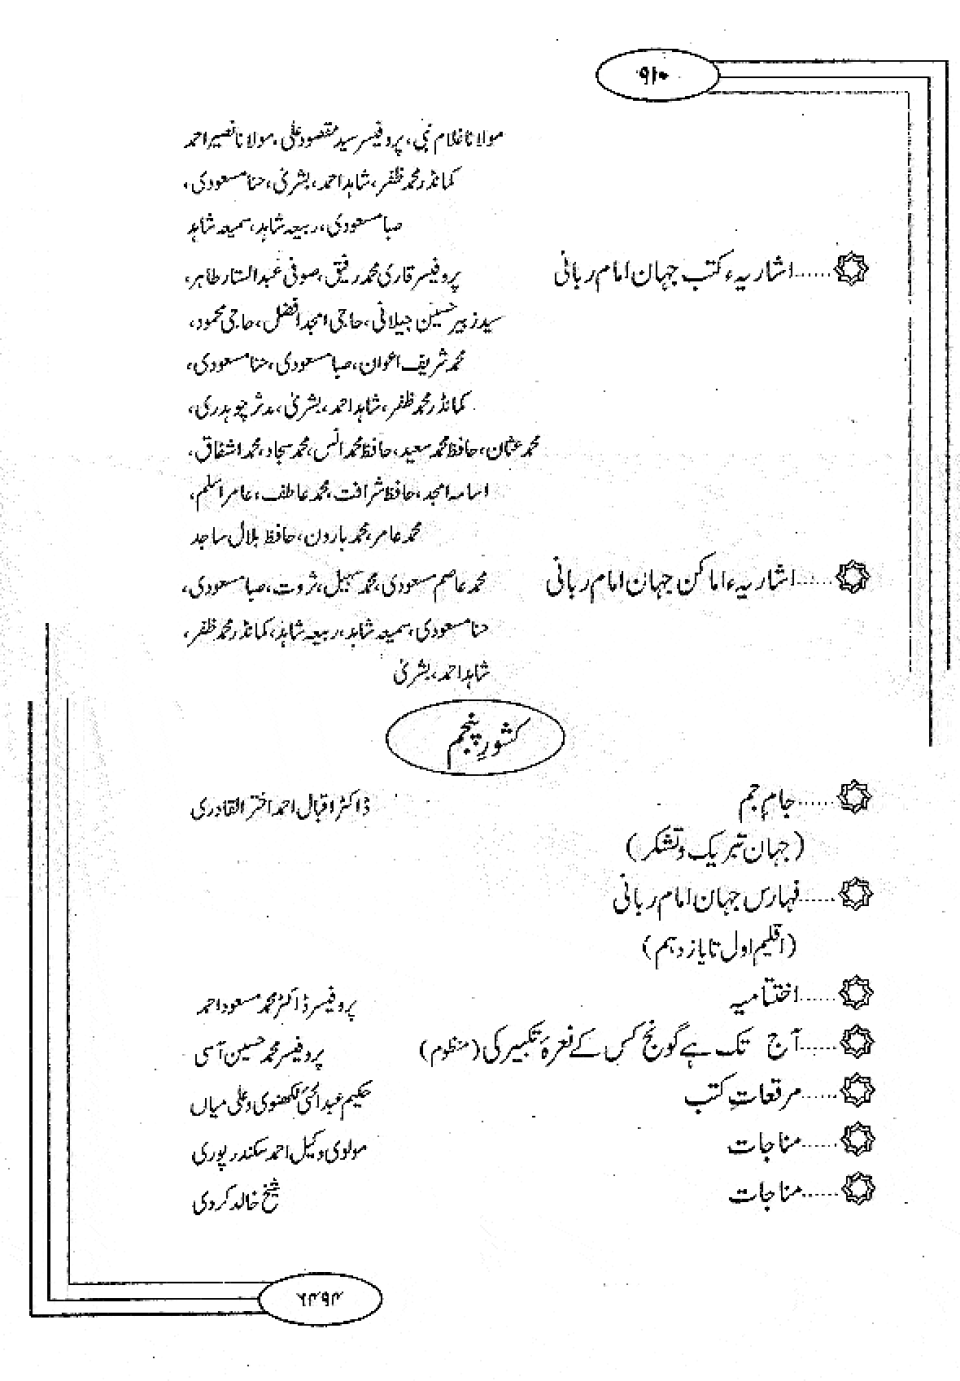 ۹۱۰
مولانا غلام نبی، پروفیسر سید مقصود علی، مولانا نصیر احمد
کمانڈر محمد ظفر، شاہد احمد، بشریٰ، حنا مسعودی،
صبا مسعودی، ربیعہ شاہد، سمیعہ شاہد
......اشاریہء کتب جہان امام ربانی پروفیسر قاری محمد رفیق، صوفی عبدالستار طاہر،
سید زبیر حسین جیلانی، حاجی امجد افضل، حاجی محمود،
محمد شریف اعوان، صبا مسعودی، حنا مسعودی،
کمانڈر محمد ظفر، شاہد احمد، بشریٰ، مدثر چوہدری،
محمد عثمان، حافظ محمد سعید، حافظ محمد انس، محمد سجاد، محمد اشفاق،
اسامہ امجد، حافظ شرافت، محمد عاطف، عامر اسلم،
محمد عامر، محمد ہارون، حافظ بلال ساجد
......اشاریہء اماکن جہان امام ربانی محمد عاصم مسعودی، محمد سہیل، ثروت، صبا مسعودی،
حنا مسعودی، سمیعہ شاہد، ربیعہ شاہد، کمانڈر محمد ظفر،
شاہد احمد، بشریٰ
کشورِ پنجم
......جامِ جم ڈاکٹر اقبال احمد اختر القادری
(جہان تبریک و تشکر)
......فہارس جہان امام ربانی
(اقلیم اول تا یازدہم)
......اختتامیہ پروفیسر ڈاکٹر محمد مسعود احمد
......آج تک ہے گونج کس کے نعرۂ تکبیر کی (منظوم) پروفیسر محمد حسین آسی
......مرقعاتِ کتب حکیم عبدالحئی لکھنوی و علی میاں
......مناجات مولوی وکیل احمد سکندر پوری
......مناجات شیخ خالد کردی